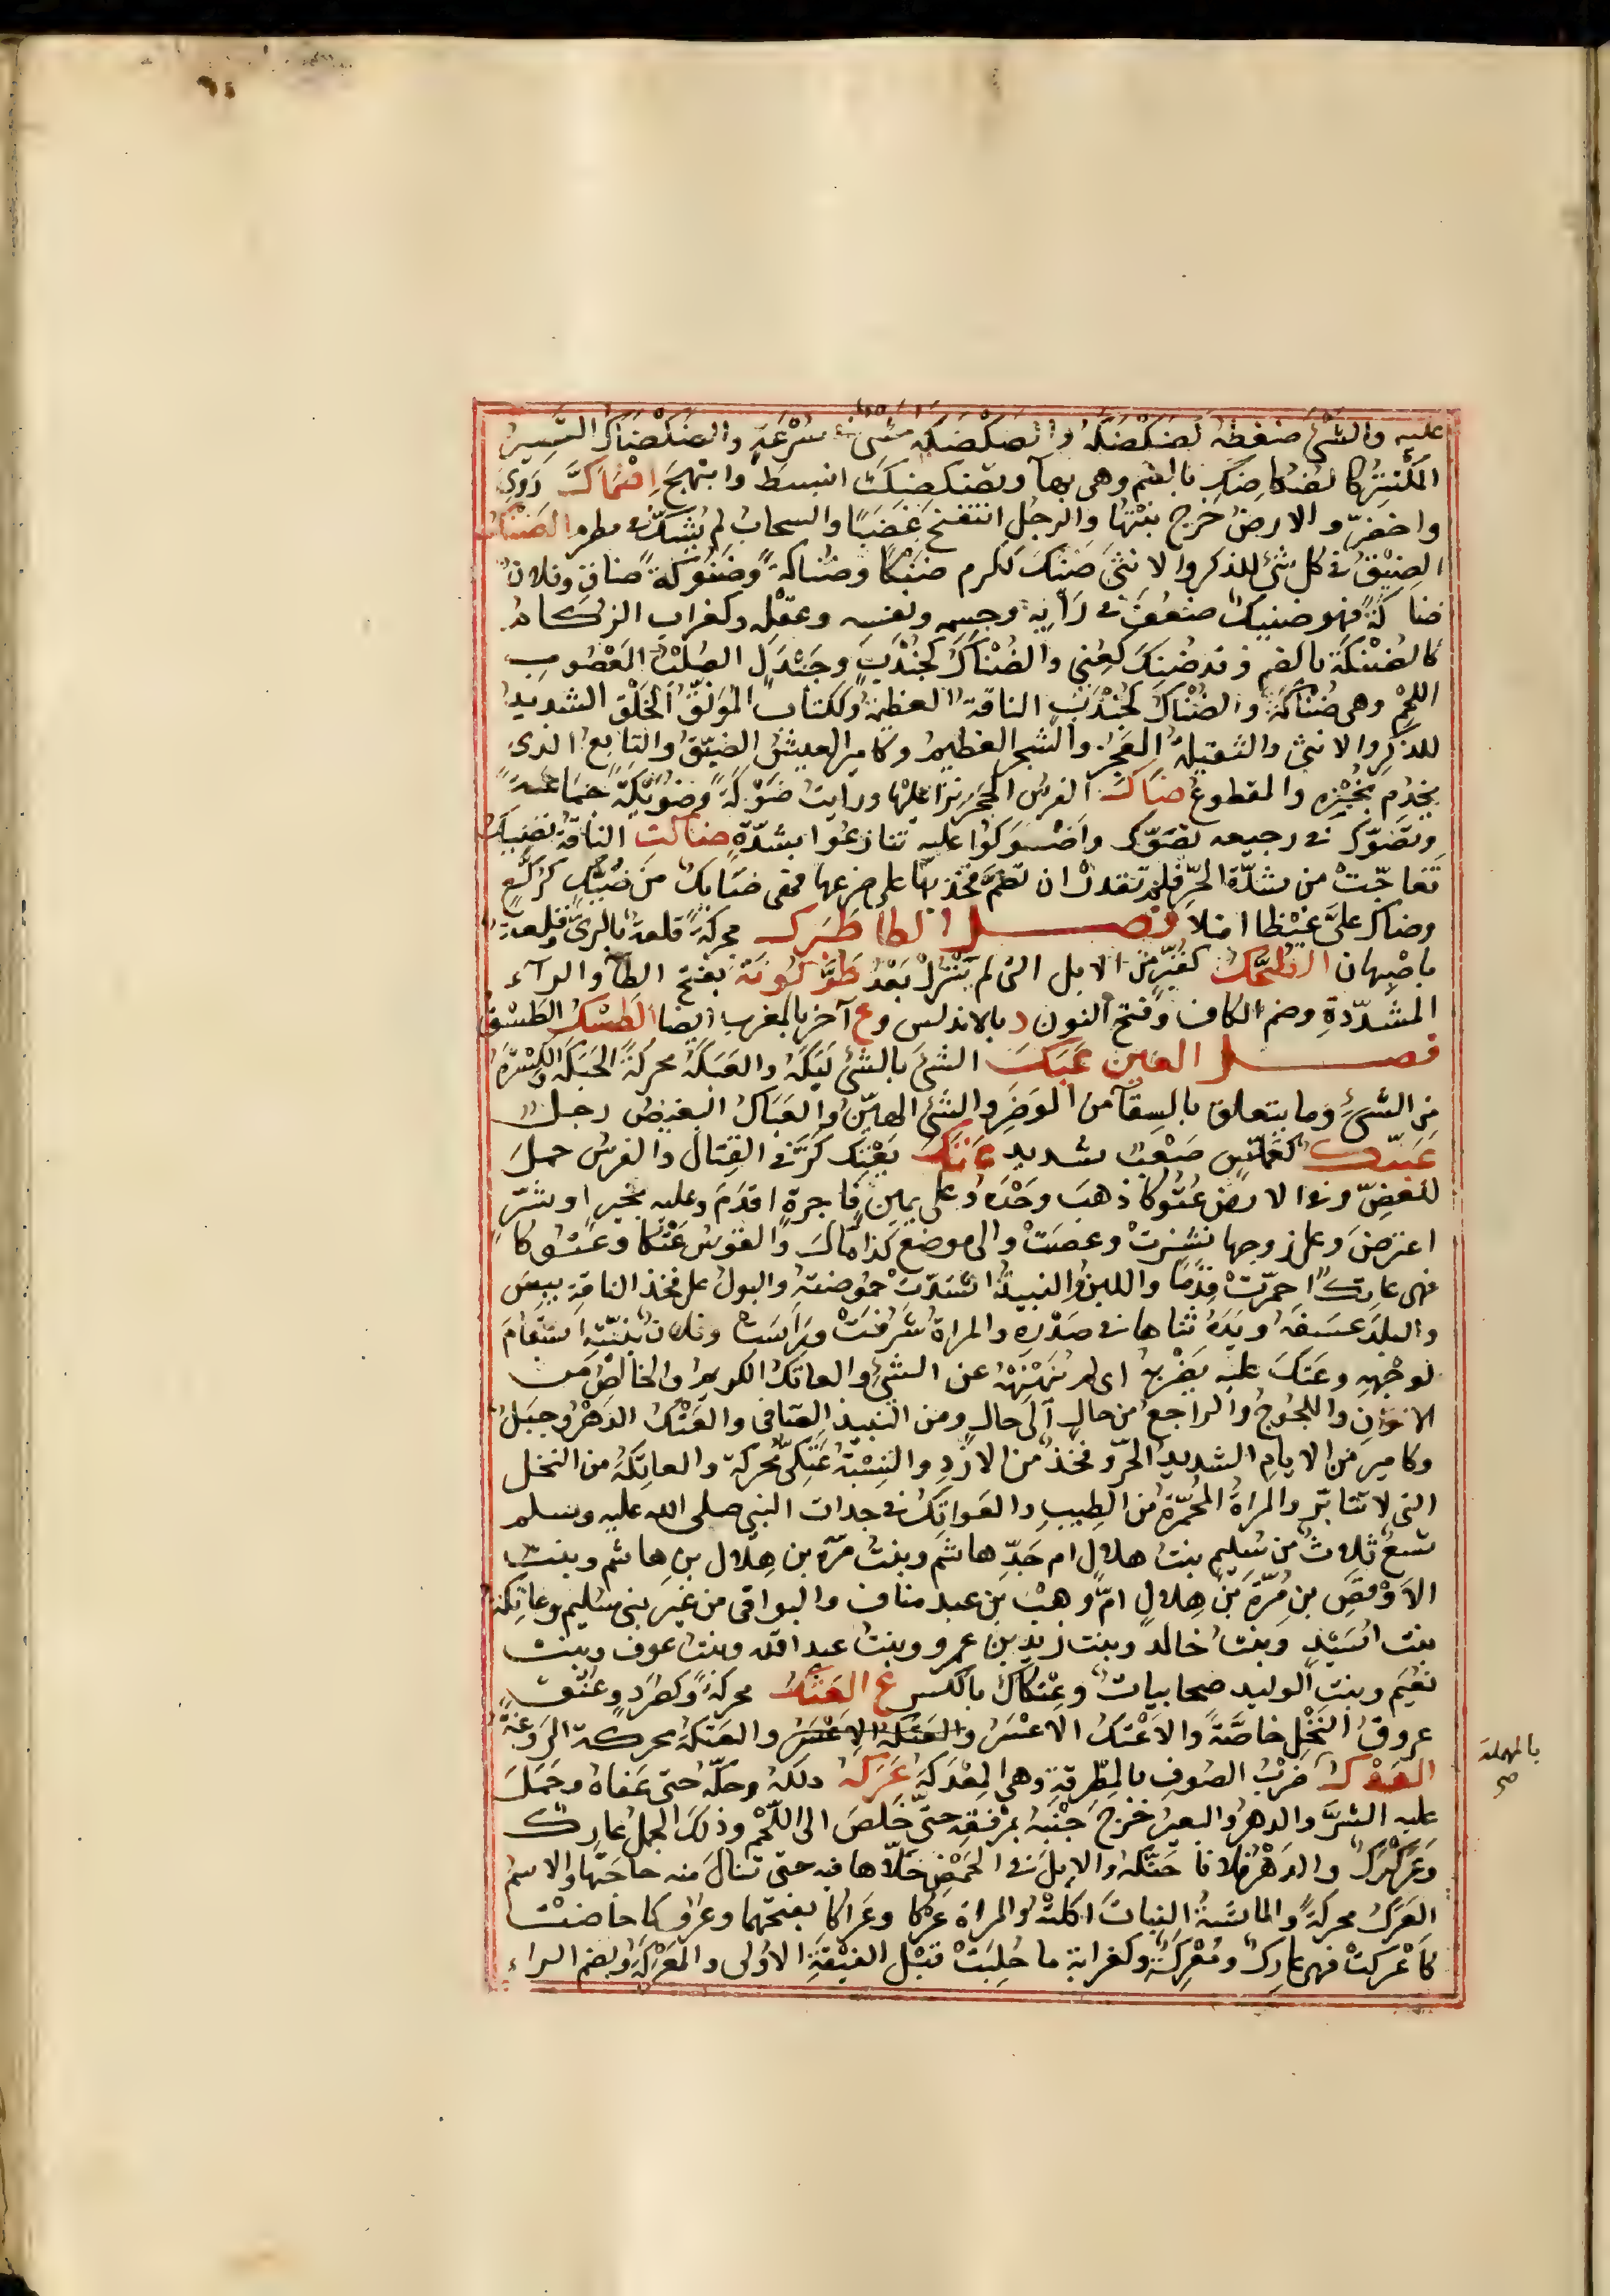 عليه والشئ ضغطه كضكضكه والضكضكة مشى فى سرعة والضكضاك القصير
المكتنز كالضكاضك بالضم وهى بهاء وتضكضك انبسط وابتهج اضماك روى
واخضرّ والارض خرج نبتها والرجل انتفخ غضبًا والسحاب لم يشك فى مطره الضنك
الضيق فى كل شئ للذكر والانثى ضنك ككرم ضنكا وضناكة وضنوكة ضاق وفلان
ضناكة فهو ضنيك ضعف فى رأيه وجسمه ونفسه وعقله وكغراب الزكام
كالضنكة بالضم وقد ضنك كعنى والضنأك كجندب وجندل الصلب المعصوب
اللحم وهى ضنأكة والضنأك كجندب الناقة العظيمة وككتاب الموثق الخلق الشديد
للذكر والانثى والثقيلة العجز والشجر العظيم وكامير العيش الضيق والتابع الذى
يخدم بخبزه والمقطوع ضاك الفرس الحجر نزا عليها ورايت ضوكة وضويكة جماعة
وتضوّك فى رجيعه تصوّك واضوكوا عليه تنازعوا بشدّة ضاكت الناقة تضيك
تفاجّت من شدّة الحرّ فلم تقدر ان تضمّ فخذيها على ضرعها فهى ضائك من ضيّك كركّع
وضاك علىّ غيظا امتلا فصل الطا طبرك محركة قلعة بالرىّ وقلعة
باصبهان الطحّك كقبّر من الابل التى لم تبزل بعد طرّكونة بفتح الطآ والرآء
المشدّدة وضم الكاف وفتح النون د بالاندلس وع آخر بالمغرب ايضا الطسك الطسق
فصل العين عبك الشئ بالشئ لبكه والعبكة محركة الحبكة والكسرة
من الشئ وما يتعلق بالسقآ من الوضر والشئ الهين والعبام البغيض رجل
عبنّك كعملّس صعب شديد عتك يعتك كرّ فى القتال والفرس حمل
للعضّ وفى الارض عتوكا ذهب وحده وعلى يمين فاجرة اقدم وعليه بخير او شرّ
اعترض وعلى زوجها نشزت وعصت والى موضع كذا مال والقوس عتكا وعتوكا
فهى عاتك احمرّت قدمًا واللبن والنبيذ اشتدّت حموضته والبول على فخذ الناقة يبس
والبلد عسفه ويده ثناها فى صدره والمراة شرفت وراست وفلان بنيّته استقام
لوجهه وعتك عليه يضربه اى لم ينهنهه عن الشئ والعاتك الكريم والخالص من
الالوان واللجوج والراجع من حال الى حال ومن النبيذ الصافى والعتك الدهر وجبل
وكامير من الايام الشديد الحرّ وفخذ من الازد والنسبة عتكىّ محركة والعاتكة من النخل
التى لا تأتبر والمراة المحمرّة من الطيب والعواتك فى جدات النبى صلى الله عليه وسلم
تسع ثلاث من سليم بنت هلال ام جدّ هاشم وبنت مرّة بن هلال بن هاشم وبنت
الاوقص بن مرّة بن هلال امّ وهب بن عبد مناف والبواقى من غير بنى سليم وعاتكة
بنت اسيد وبنت خالد وبنت زيد بن عمرو وبنت عبد الله وبنت عوف وبنت
نعيم وبنت الوليد صحابيات وعتكان بالكسر ع العثك محركة وكصرد وعنق
عروق النخل خاصّة والاعثك الاعسر والعثكة الاعسر والعثكة محركة الردغة
العدك ضرب الصوف بالمطرقة وهى المعدكة عركه دلكه وحكّه حتى عفاه وحمل
بالمهملة
صح
عليه الشرّ والدهر والبعير خزج جنبه بمرفقه حتى خلص الى اللحم وذلك الجمل عارك
وعركرك والدهر فلانا حنّكه والابل فى الحمض خلّاها فيه حتى تنال منه حاجتها والاسم
العرك محركة والماشية النبات اكلته والمراة عركا وعراكا بفتحهما وعروكا حاضت
كاعركت فهى عارك ومعرك وكغرابة ما حلبت قبل الفيقة الاولى والمعركة وبضم الراء